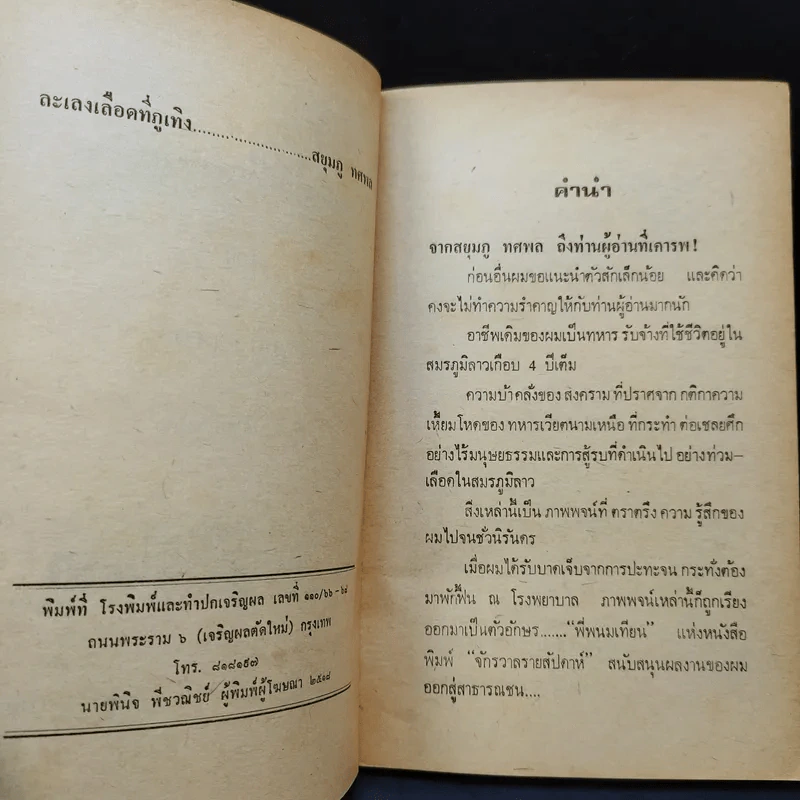 ละเลงเลือดที่ภูเทิง..........................สยุมภู ทศพล
พิมพ์ที่ โรงพิมพ์และทำปกเจริญผล เลขที่ ๑๑๐/๖๖-๖๘
ถนนพระราม ๖ (เจริญผลตัดใหม่) กรุงเทพ
โทร. ๘๑๘๑๙๗
นายพินิจ พืชวณิชย์ ผู้พิมพ์ผู้โฆษณา ๒๕๑๘
คำนำ
จากสยุมภู ทศพล ถึงท่านผู้อ่านที่เคารพ!
ก่อนอื่นผมขอแนะนำตัวสักเล็กน้อย และคิดว่า
คงจะไม่ทำความรำคาญให้กับท่านผู้อ่านมากนัก
อาชีพเดิมของผมเป็นทหาร รับจ้างที่ใช้ชีวิตอยู่ใน
สมรภูมิลาวเกือบ 4 ปีเต็ม
ความบ้า คลั่งของ สงคราม ที่ปราศจาก กติกาความ
เหี้ยมโหดของ ทหารเวียตนามเหนือ ที่กระทำ ต่อเชลยศึก
อย่างไร้มนุษยธรรมและการสู้รบที่ดำเนินไป อย่างท่วม-
เลือดในสมรภูมิลาว
สิ่งเหล่านี้เป็น ภาพพจน์ที่ ตราตรึง ความ รู้สึกของ
ผมไปจนชั่วนิรันดร
เมื่อผมได้รับบาดเจ็บจากการปะทะจน กระทั่งต้อง
มาพักฟื้น ณ โรงพยาบาล ภาพพจน์เหล่านี้ก็ถูกเรียง
ออกมาเป็นตัวอักษร.......“พี่พนมเทียน” แห่งหนังสือ
พิมพ์ “จักรวาลรายสัปดาห์” สนับสนุนผลงานของผม
ออกสู่สาธารณชน....